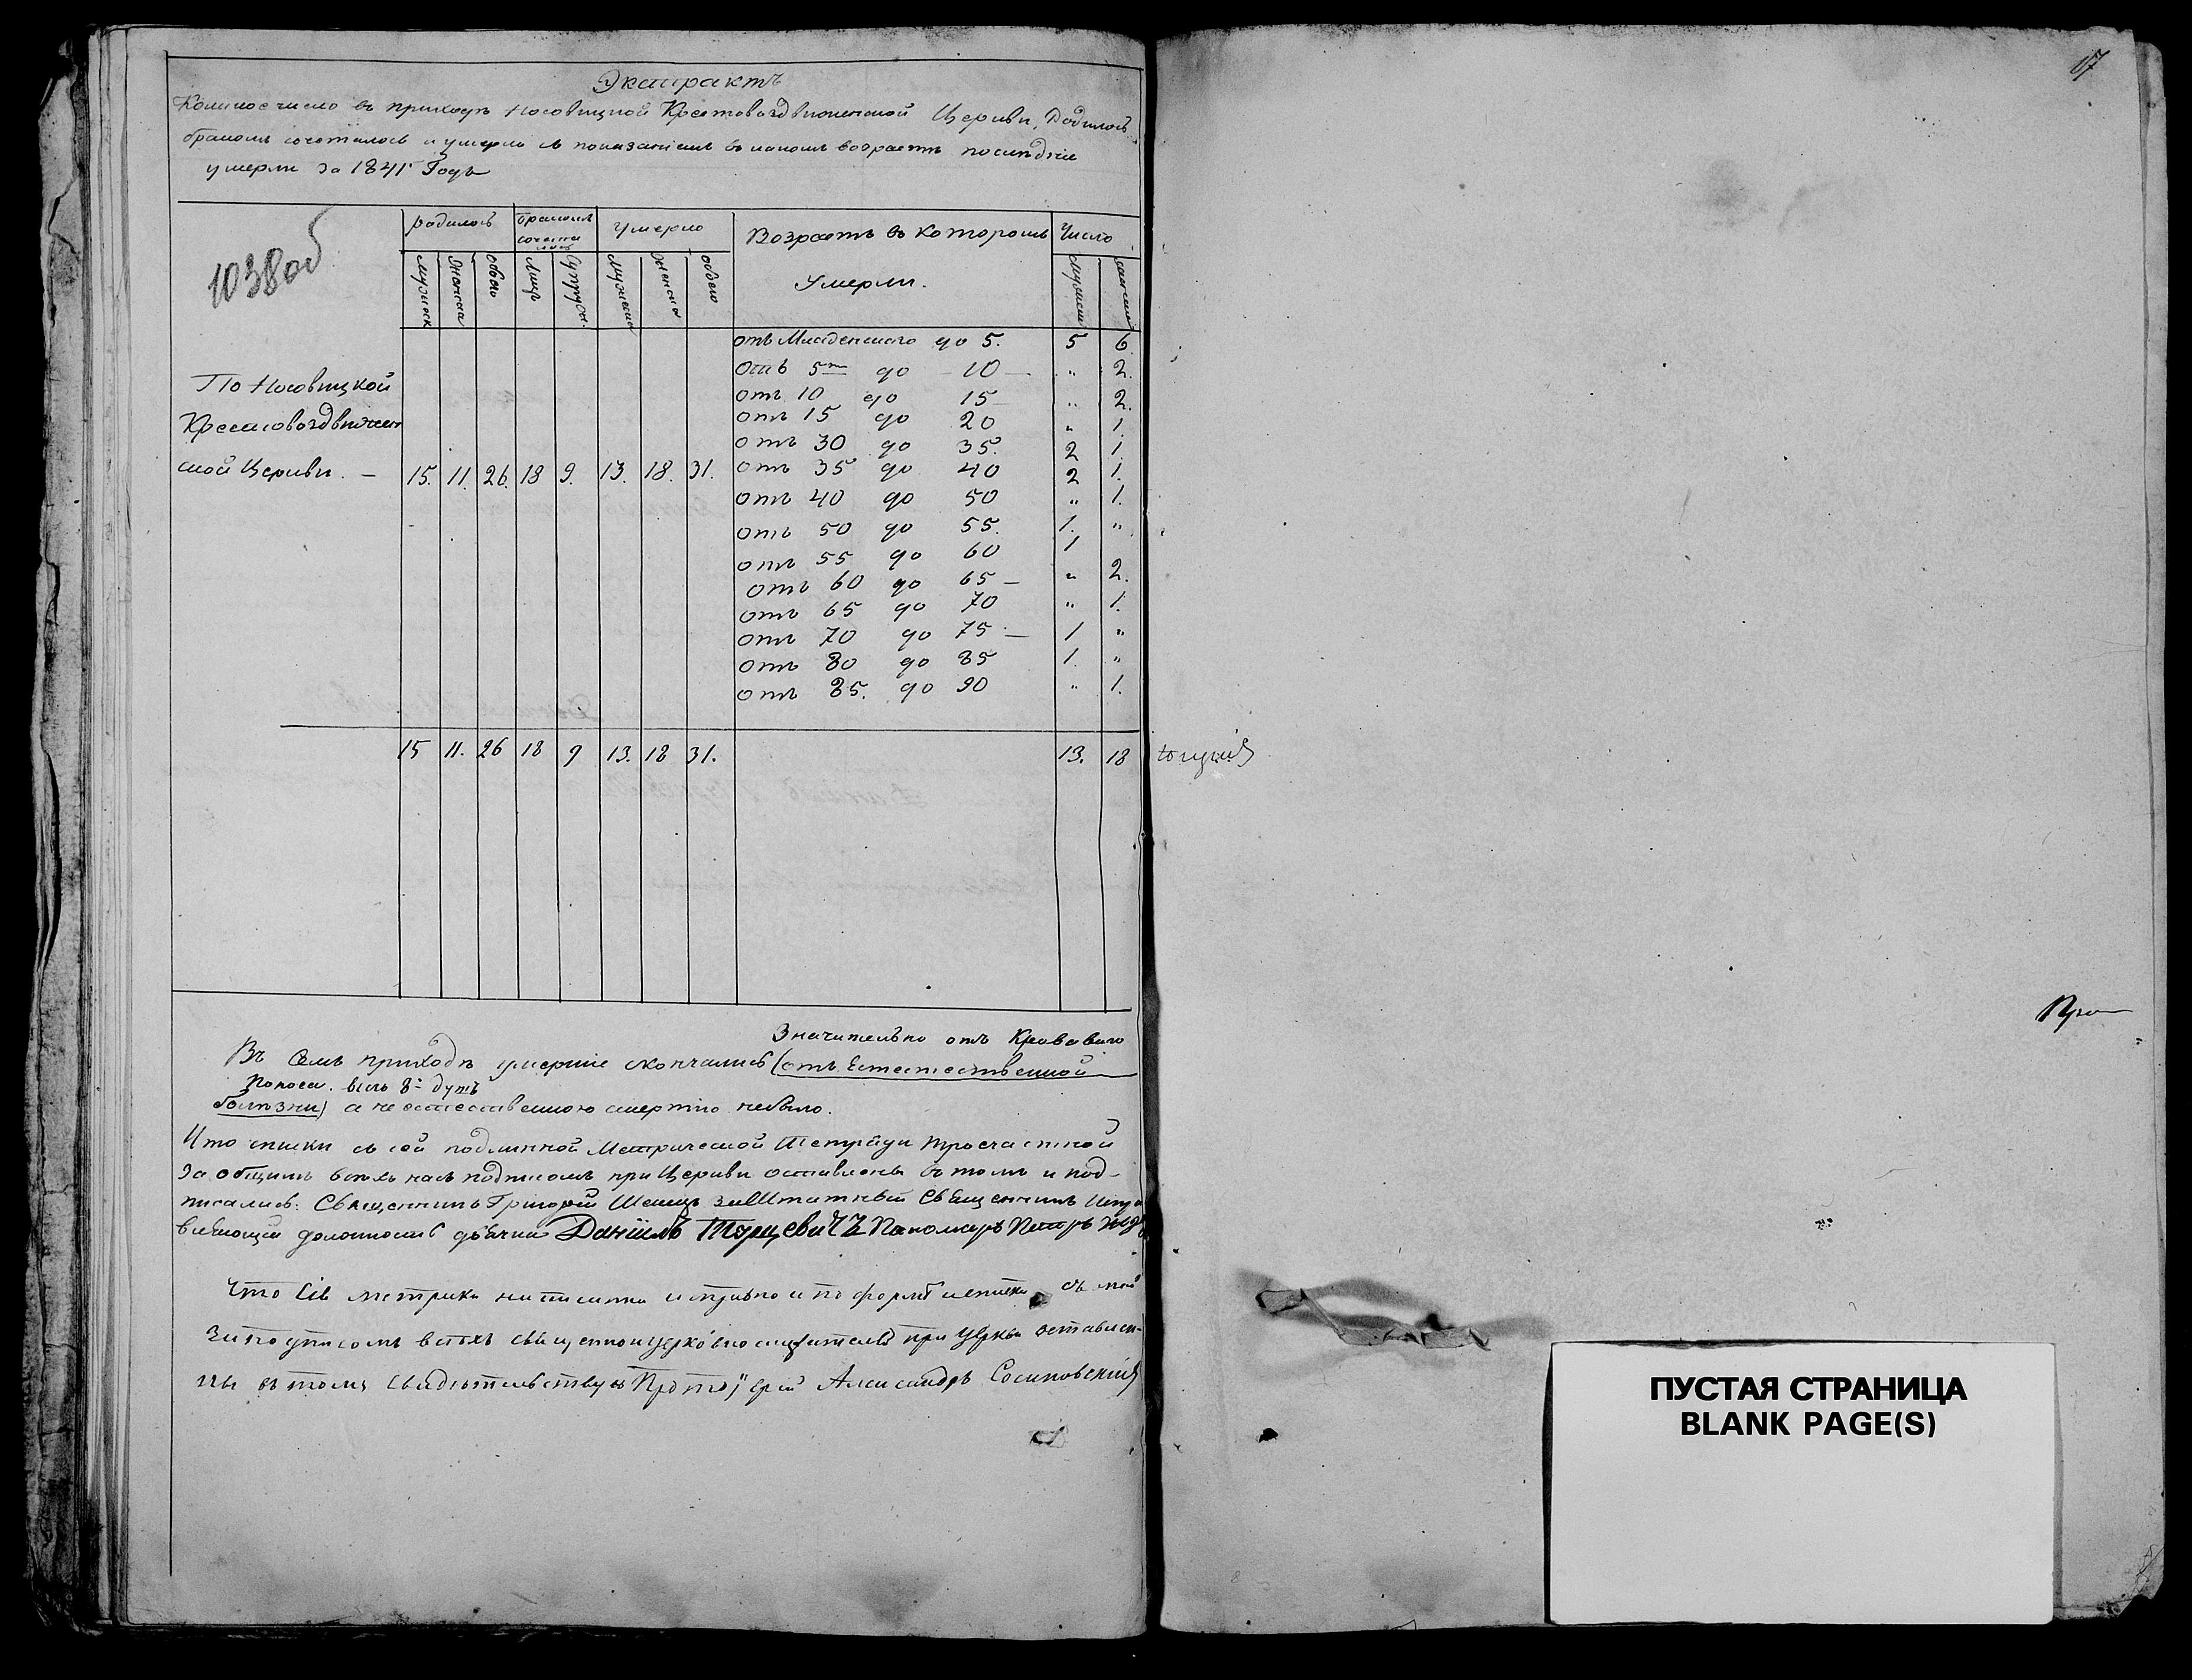 Экстрактъ
Коликое число въ приходѣ Носовицкой Крестовоздвиженской Церкви, Родилось
бракомъ сочеталось и умерло съ показаніемъ въ какомъ возрастѣ послѣдніе
умерли За 1841 Годъ
1038 об
родилось бракомъ сочеталось умерло Возрастъ въ которомъ Число
Умерли.
мужеск женска обоего лицъ супруж. мужеска женска обоего мужеска женска
отъ Младенскаго до 5. 5 6
отъ 5ти до 10 — „ 2.
По Носовицкой
отъ 10 до 15 „ 2.
отъ 15 до 20 „ 1.
Крестовоздвижен
отъ 30 до 35. 2 1.
ской Церкви. — 15. 11. 26. 18 9. 13. 18. 31. отъ 35 до 40 2 1.
отъ 40 до 50 „ 1.
отъ 50 до 55. 1. „
отъ 55 до 60 1
отъ 60 до 65 — „ 2.
отъ 65 до 70 „ 1.
отъ 70 до 75 — 1 „
отъ 80 до 85 1. „
отъ 85. до 90 „ 1.
15 11. 26 18 9 13. 18 31. 13. 18
Значительно отъ Кроваваго
Въ Семъ приходѣ умершіе скончались (отъ Естественной
Поноса.
болѣзни) а неестественною смертію небыло.
Что списки съ сей подлинной Метрической Тетради троечастной
За общимъ всѣхъ насъ подписомъ при Церкви оставлены въ томъ и под-
писались: Священникъ Григорій заШтатный Священникъ
должность дьячка Даніилъ Пономарь Петръ
Что сіи метрики написаны исправно и по формѣ и списки съ
за подписомъ всѣхъ священноцерковнослужителей при Церкви оставлен-
ны въ томъ свидѣтельствую Протоіерей Александръ Сосиновскій
17
ПУСТАЯ СТРАНИЦА
BLANK PAGE(S)